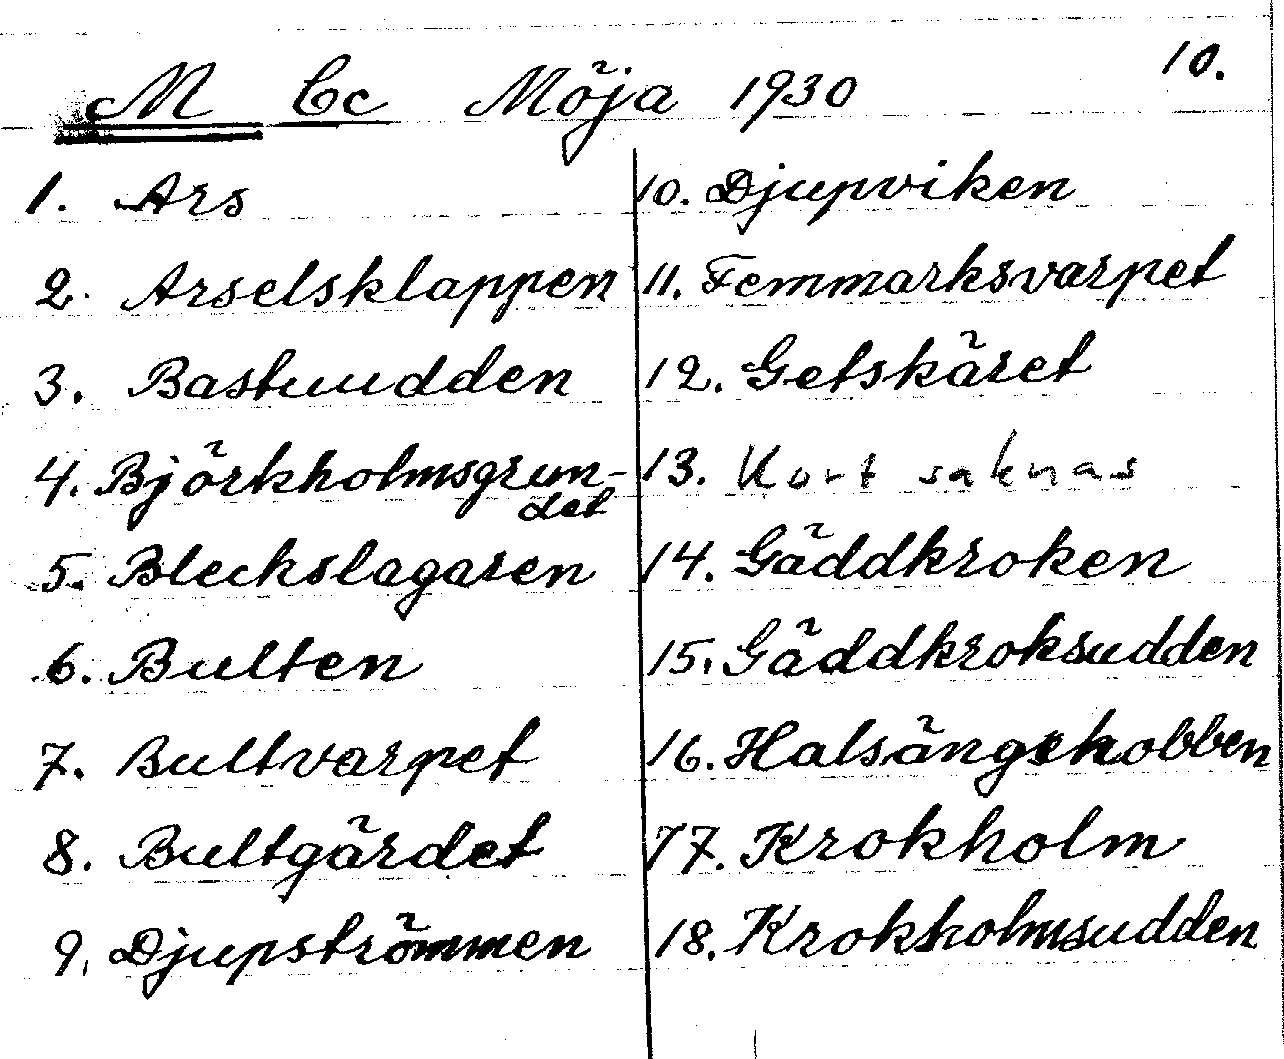 10.
M Cc Möja 1930
1. Ars
2. Arselsklappen
3. Bastuudden
4. Björkholmsgrun-
det
5. Bleckslagaren
6. Bulten
7. Bultvarpet
8. Bultgärdet
9. Djupströmmen
10. Djupviken
11. Femmarksvarpet
12. Getskäret
13. Kort saknas
14. Gäddkroken
15. Gäddkroksudden
16. Halsängskobben
17. Krokholm
18. Krokholmsudden